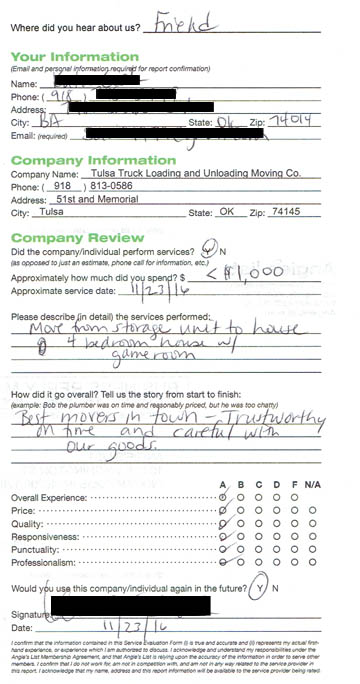 Where did you hear about us? Friend
Your Information
(Email and personal information required for report confirmation)
Name:
Phone: ( 918 )
Address:
City: BA State: Ok Zip: 74014
Email: (required)
Company Information
Company Name: Tulsa Truck Loading and Unloading Moving Co.
Phone: ( 918 ) 813-0586
Address: 51st and Memorial
City: Tulsa State: OK Zip: 74145
Company Review
Did the company/individual perform services? Y N
(as opposed to just an estimate, phone call for information, etc.)
Approximately how much did you spend? $ < $1,000
Approximate service date: 11/23/16
Please describe (in detail) the services performed:
Move from storage unit to house
4 bedroom house w/
gameroom
How did it go overall? Tell us the story from start to finish:
(example: Bob the plumber was on time and reasonably priced, but he was too chatty)
Best movers in town - Trustworthy
on time and careful with
our goods.
A B C D F N/A
Overall Experience:
Price:
Quality:
Responsiveness:
Punctuality:
Professionalism:
Would you use this company/individual again in the future? Y N
Signature
Date: 11/23/16
I confirm that the information contained in this Service Evaluation Form (i) is true and accurate and (ii) represents my actual first-
hand experience, or experience which I am authorized to discuss. I acknowledge and understand my responsibilities under the
Angie's List Membership Agreement, and that Angie's List is relying upon the accuracy of the information in order to serve other
members. I confirm that I do not work for, am not in competition with, and am not in any way related to the service provider in
this report. I acknowledge that my name, address and this report information will be available to the service provider being rated.